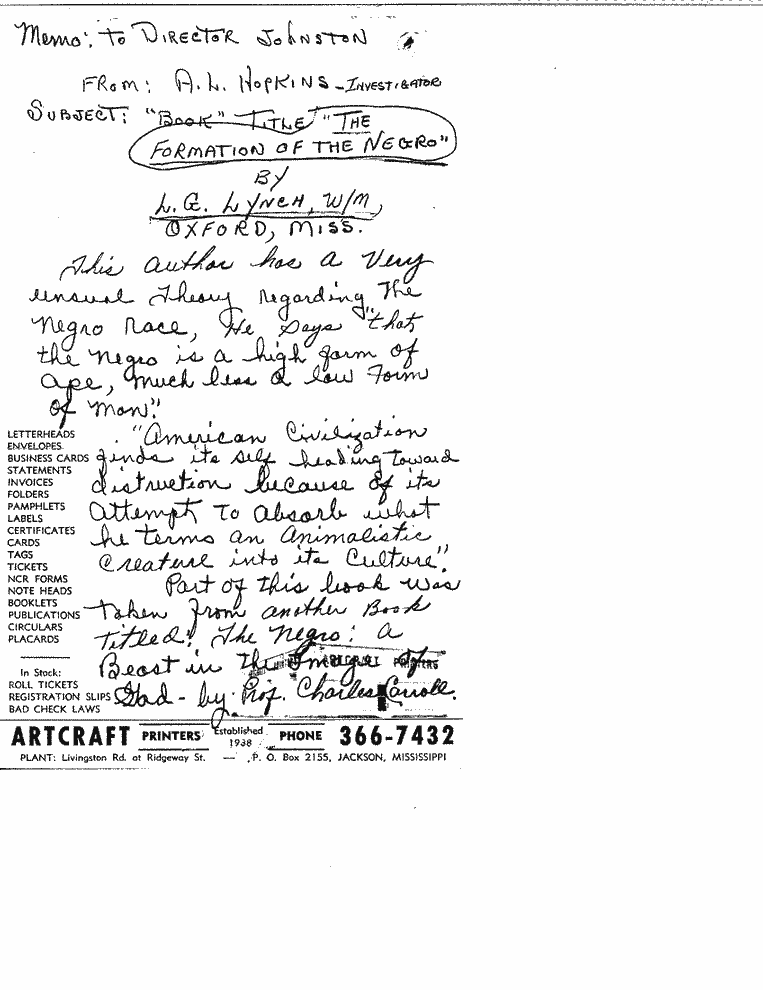 Memo: To Director Johnston
From: A. L. Hopkins - Investigator
Subject: "Book" Title "The
Formation of the Negro"
By
L. G. Lynch, W/M,
Oxford, Miss.
This author has a very
unsual theory regarding the
Negro Race, He says "that
the negro is a high form of
ape, much less a low form
of man".
"American Civilization
finds its self heading toward
distruction because of its
attempt to absorb what
he terms an animalistic
creature into its culture".
Part of this book was
taken from another Book
Titled: The Negro: a
Beast in the Image of
God - by Prof. Charles Carroll.
LETTERHEADS
ENVELOPES
BUSINESS CARDS
STATEMENTS
INVOICES
FOLDERS
PAMPHLETS
LABELS
CERTIFICATES
CARDS
TAGS
TICKETS
NCR FORMS
NOTE HEADS
BOOKLETS
PUBLICATIONS
CIRCULARS
PLACARDS
In Stock:
ROLL TICKETS
REGISTRATION SLIPS
BAD CHECK LAWS
ARTCRAFT PRINTERS Established 1938 PHONE 366-7432
PLANT: Livingston Rd. at Ridgeway St. — P. O. Box 2155, JACKSON, MISSISSIPPI